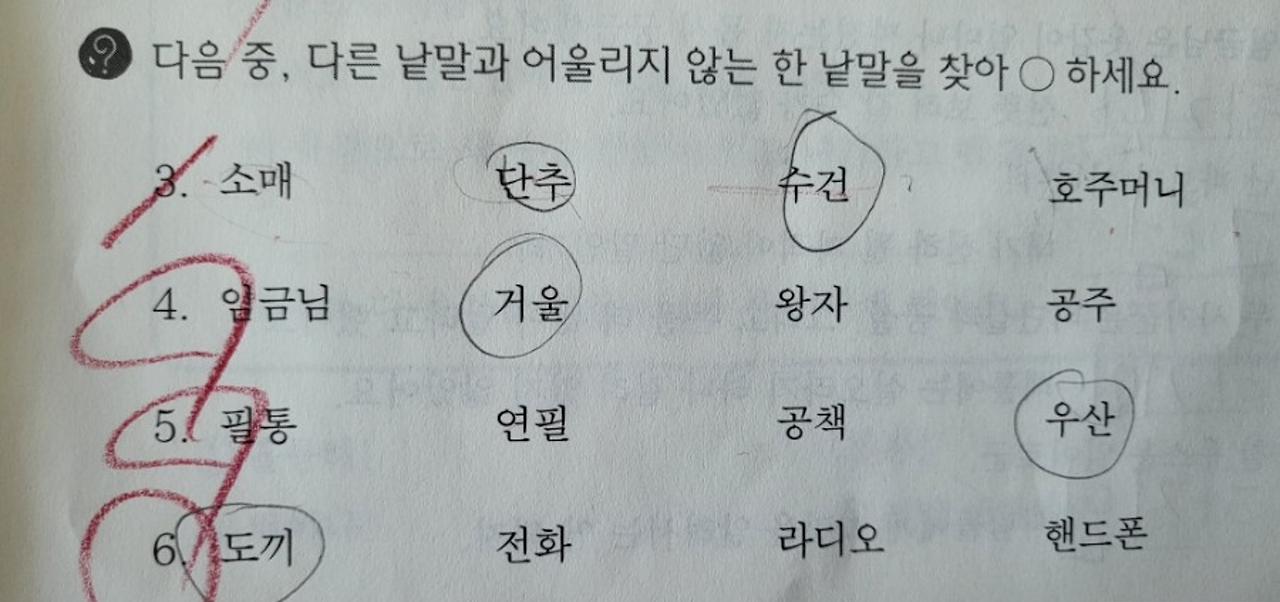 ? 다음 중, 다른 낱말과 어울리지 않는 한 낱말을 찾아 ○ 하세요.
3. 소매 단추 수건 호주머니
4. 임금님 거울 왕자 공주
5. 필통 연필 공책 우산
6. 도끼 전화 라디오 핸드폰